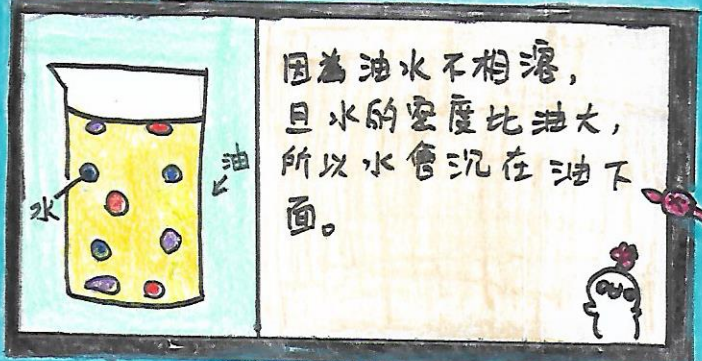 水
油
因為油水不相溶，
且水的密度比油大，
所以水會沉在油下
面。